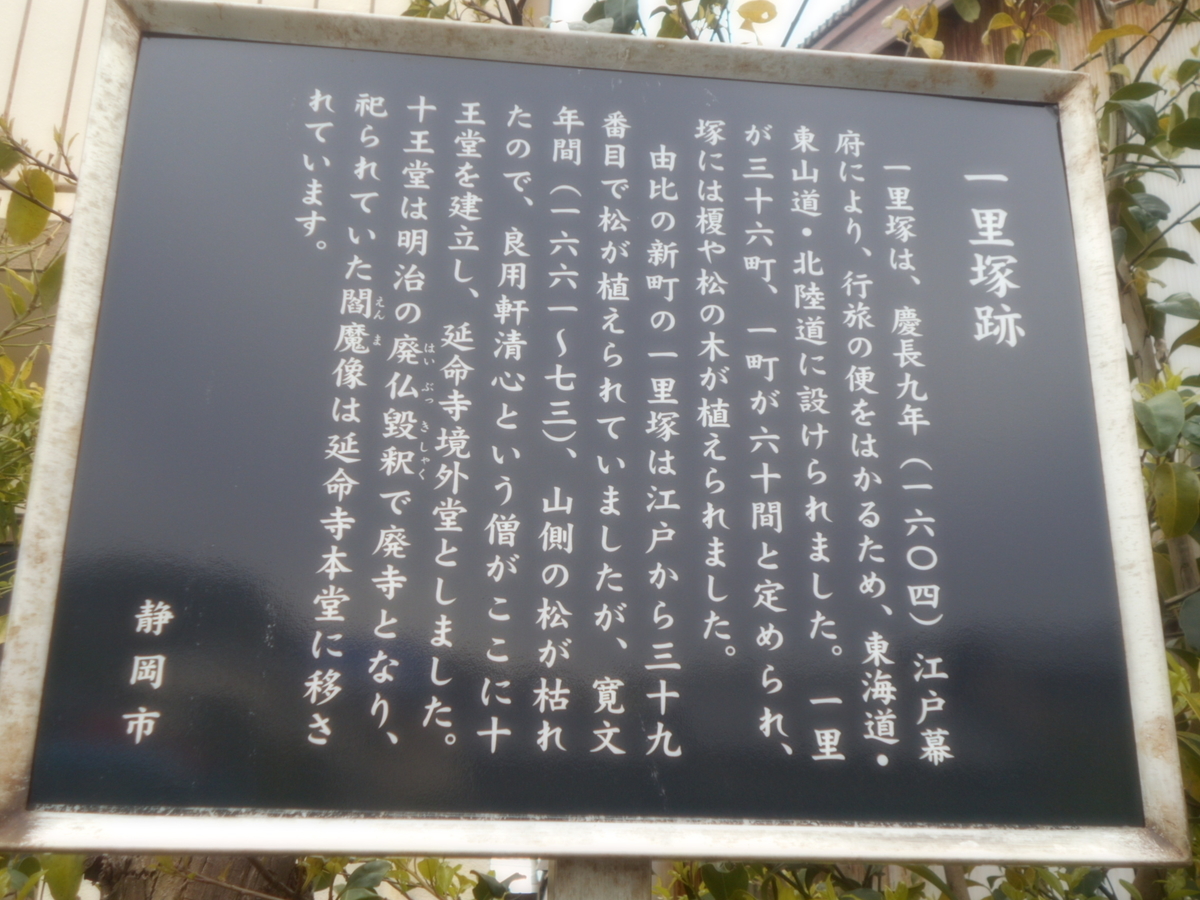 一里塚跡
一里塚は、慶長九年（一六〇四）江戸幕
府により、行旅の便をはかるため、東海道・
東山道・北陸道に設けられました。一里
が三十六町、一町が六十間と定められ、
塚には榎や松の木が植えられました。
由比の新町の一里塚は江戸から三十九
番目で松が植えられていましたが、寛文
年間（一六六一～七三）、山側の松が枯れ
たので、良用軒清心という僧がここに十
王堂を建立し、延命寺境外堂としました。
十王堂は明治の廃仏毀釈で廃寺となり、
はいぶっきしゃく
祀られていた閻魔像は延命寺本堂に移さ
えんま
れています。
静岡市